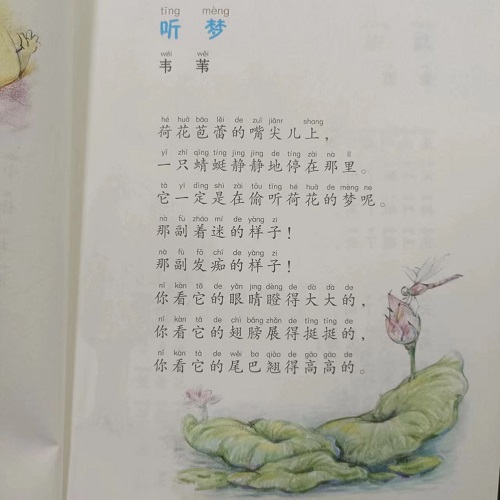 tīng mèng
听 梦
wěi wěi
韦 苇
hé huā bāo lěi de zuǐ jiānr shang
荷花苞蕾的嘴尖儿上，
yì zhī qīng tíng jìng jìng de tíng zài nà lǐ
一只蜻蜓静静地停在那里。
tā yí dìng shì zài tōu tīng hé huā de mèng ne
它一定是在偷听荷花的梦呢。
nà fù zháo mí de yàng zi
那副着迷的样子！
nà fù fā chī de yàng zi
那副发痴的样子！
nǐ kàn tā de yǎn jing dèng de dà dà de
你看它的眼睛瞪得大大的，
nǐ kàn tā de chì bǎng zhǎn de tǐng tǐng de
你看它的翅膀展得挺挺的，
nǐ kàn tā de wěi ba qiào de gāo gāo de
你看它的尾巴翘得高高的。